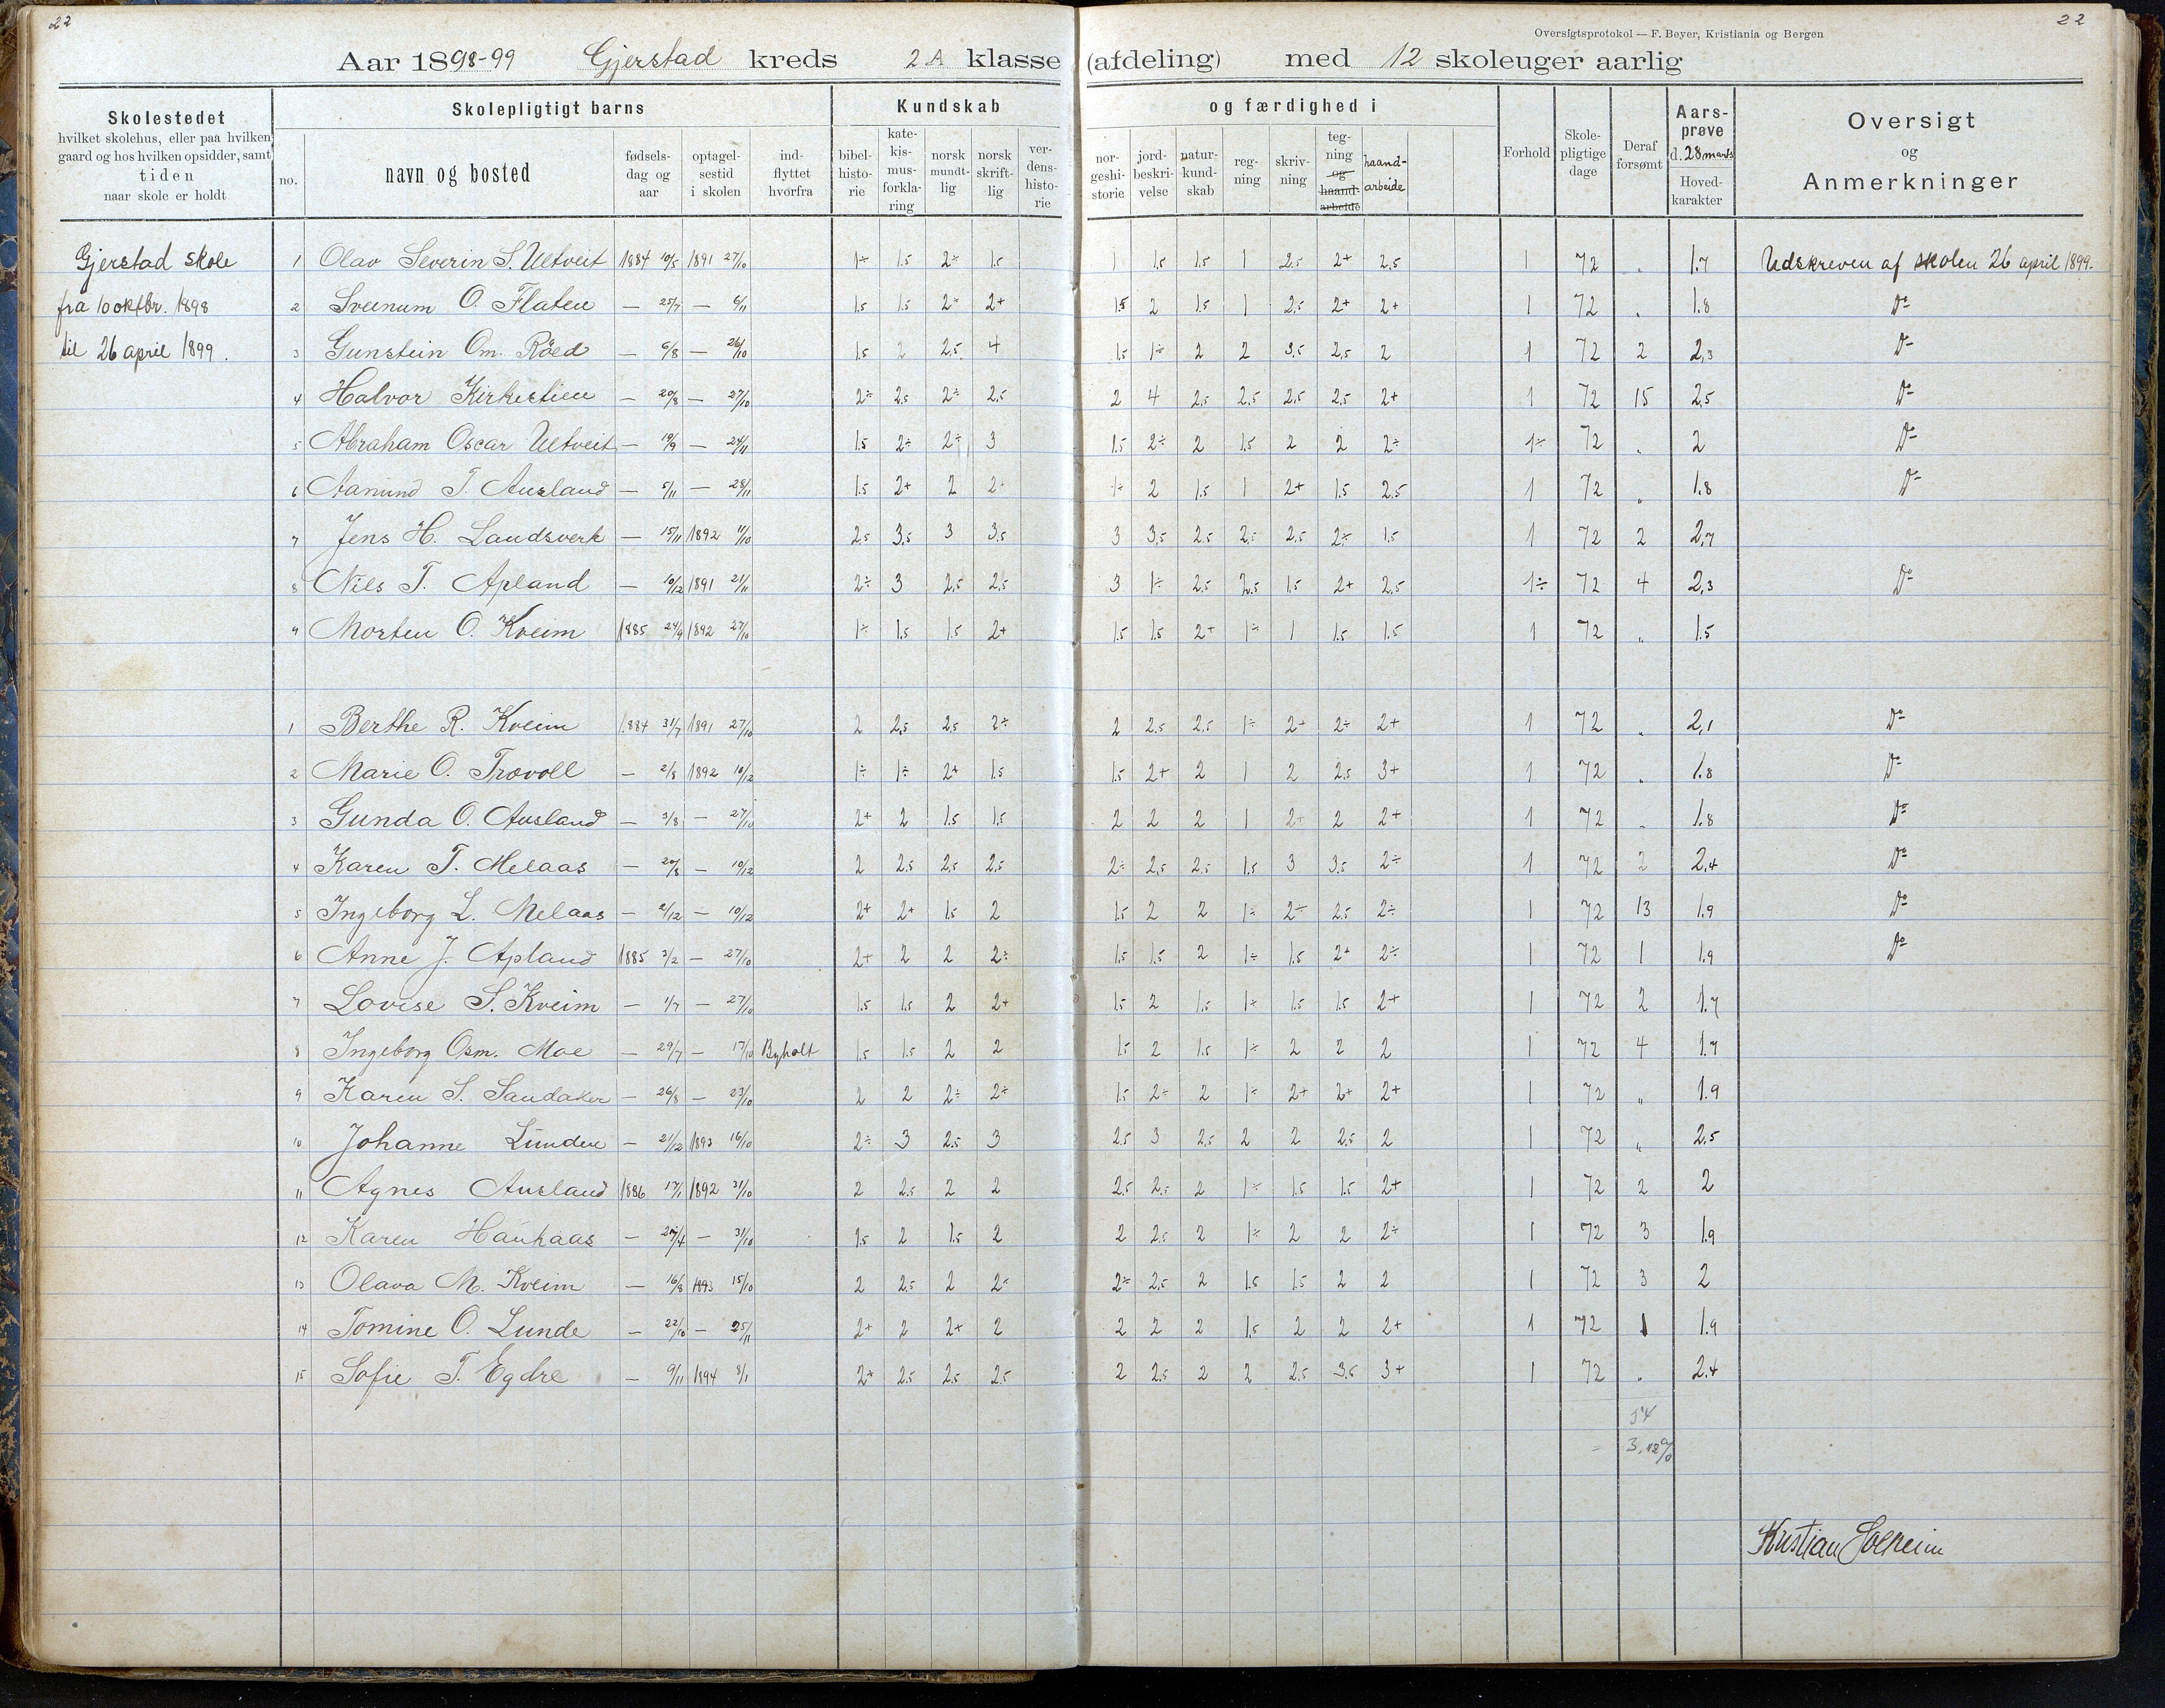 22
22
Oversigtsprotokol — F. Beyer, Kristiania og Bergen
Aar 1898-99 Gjerstad kreds 2 A klasse (afdeling) med 12 skoleuger aarlig
Skolestedet
hvilket skolehus, eller paa hvilken gaard og hos hvilken opsidder, samt
tiden
naar skole er holdt
Skolepligtigt barns
no.
navn og bosted
fødselsdag og aar
optagelsestid i skolen
indflyttet hvorfra
Kundskab og færdighed i
bibelhistorie
katekismusforklaring
norsk mundtlig
norsk skriftlig
verdenshistorie
norgeshistorie
jordbeskrivelse
naturkundskab
regning
skrivning
tegning og haandarbeide
haandarbeide
Forhold
Skolepligtige dage
Deraf forsømt
Aarsprøve
d. 28 marts
Hovedkarakter
Oversigt
og
Anmerkninger
Gjerstad skole
fra 10 oktbr. 1898
til 26 april 1899.
1 Olav Severin S. Ueltveit 1884 10/5 1891 27/10 1÷ 1.5 2÷ 1.5 1 1.5 1.5 1 2.5 2+ 2,5 1 72 „ 1.7 Udskreven af skolen 26 april 1899.
2 Sveinum O. Flaten — 25/7 — 6/11 1.5 1.5 2÷ 2+ 1.5 2 1.5 1 2.5 2+ 2+ 1 72 „ 1.8 Do
3 Gunstein Om. Røed — 6/8 — 26/10 1.5 2 2.5 4 1.5 1÷ 2 2 3.5 2,5 2 1 72 2 2,3 Do
4 Halvor Kirkestien — 20/8 — 27/10 2÷ 2.5 2÷ 2.5 2 4 2.5 2.5 2.5 2.5 2+ 1 72 15 2,5 Do
5 Abraham Oscar Ueltveit — 19/9 — 24/11 1.5 2÷ 2÷ 3 1.5 2÷ 2 1.5 2 2 2÷ 1÷ 72 „ 2 Do
6 Aanund T. Ausland — 5/11 — 28/11 1.5 2+ 2 2÷ 1÷ 2 1.5 1 2+ 1.5 2.5 1 72 „ 1.8 Do
7 Jens H. Landsverk — 15/11 1892 11/10 2.5 3.5 3 3.5 3 3.5 2.5 2.5 2.5 2÷ 1.5 1 72 2 2,7
8 Nils T. Apland — 10/12 1891 21/11 2÷ 3 2.5 2.5 3 1÷ 2.5 2.5 1.5 2+ 2.5 1÷ 72 4 2,3 Do
9 Morten O. Kveim 1885 24/9 1892 27/10 1÷ 1.5 1.5 2+ 1.5 1.5 2+ 1÷ 1 1.5 1.5 1 72 „ 1.5
1 Berthe R. Kveim 1884 31/7 1891 27/10 2 2,5 2.5 2÷ 2 2.5 2.5 1÷ 2+ 2÷ 2+ 1 72 „ 2,1 Do
2 Marie O. Trovoll — 2/8 1892 10/12 1÷ 1÷ 2+ 1.5 1.5 2+ 2 1 2 2.5 3+ 1 72 „ 1.8 Do
3 Gunda O. Ausland — 3/8 — 27/10 2+ 2 1.5 1.5 2 2 2 1 2+ 2 2+ 1 72 „ 1.8 Do
4 Karen T. Melaas — 20/8 — 10/12 2 2.5 2.5 2.5 2÷ 2.5 2.5 1.5 3 3.5 2÷ 1 72 2 2,4 Do
5 Ingeborg L. Melaas — 2/12 — 10/12 2+ 2+ 1.5 2 1.5 2 2 1÷ 2÷ 2.5 2÷ 1 72 13 1.9 Do
6 Anne J. Apland 1885 3/2 — 27/10 2+ 2 2 2÷ 1.5 1.5 2 1÷ 1.5 2+ 2÷ 1 72 1 1.9 Do
7 Lovise S. Kveim — 1/7 — 27/10 1.5 1.5 2 2+ 1.5 2 1.5 1÷ 1.5 1.5 2+ 1 72 2 1.7
8 Ingeborg Osm. Moe — 29/7 — 17/10 Byholt 1.5 1.5 2 2 1.5 2 1.5 1÷ 2 2 2 1 72 4 1.7
9 Karen S. Sandaker — 26/8 — 23/10 2 2 2÷ 2÷ 1.5 2÷ 2 1÷ 2+ 2+ 2+ 1 72 „ 1.9
10 Johanne Lunden — 21/12 1893 16/10 2÷ 3 2.5 3 2.5 3 2.5 2 2 2.5 2 1 72 „ 2.5
11 Agnes Ausland 1886 17/1 1892 31/10 2 2.5 2 2 2.5 2.5 2 1÷ 1.5 1.5 2+ 1 72 2 2
12 Karen Haukaas — 27/4 — 31/10 1.5 2 1.5 2 2 2.5 2 1÷ 2 2 2÷ 1 72 3 1.9
13 Olava M. Kveim — 16/8 1893 15/10 2 2.5 2 2÷ 2÷ 2.5 2 1.5 1.5 2 2 1 72 3 2
14 Tomine O. Lunde — 22/10 — 25/11 2+ 2 2+ 2 2 2 2 1.5 2 2 2+ 1 72 1 1.9
15 Sofie T. Egdre — 9/11 1894 8/1 2+ 2.5 2.5 2.5 2 2.5 2 2 2.5 3.5 3+ 1 72 „ 2.4
54
3,12 %
Kristian Solheim